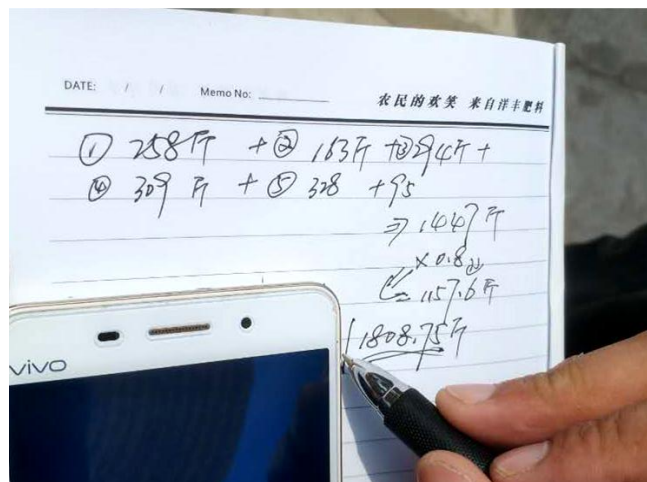 DATE: / / Memo No:
农民的欢笑 来自洋丰肥料
① 258斤 +② 163斤 +③294斤+
④ 309斤 +⑤ 328 +95
⇒ 1447斤
×0.8
= 1157.6斤
1808.75斤
vivo